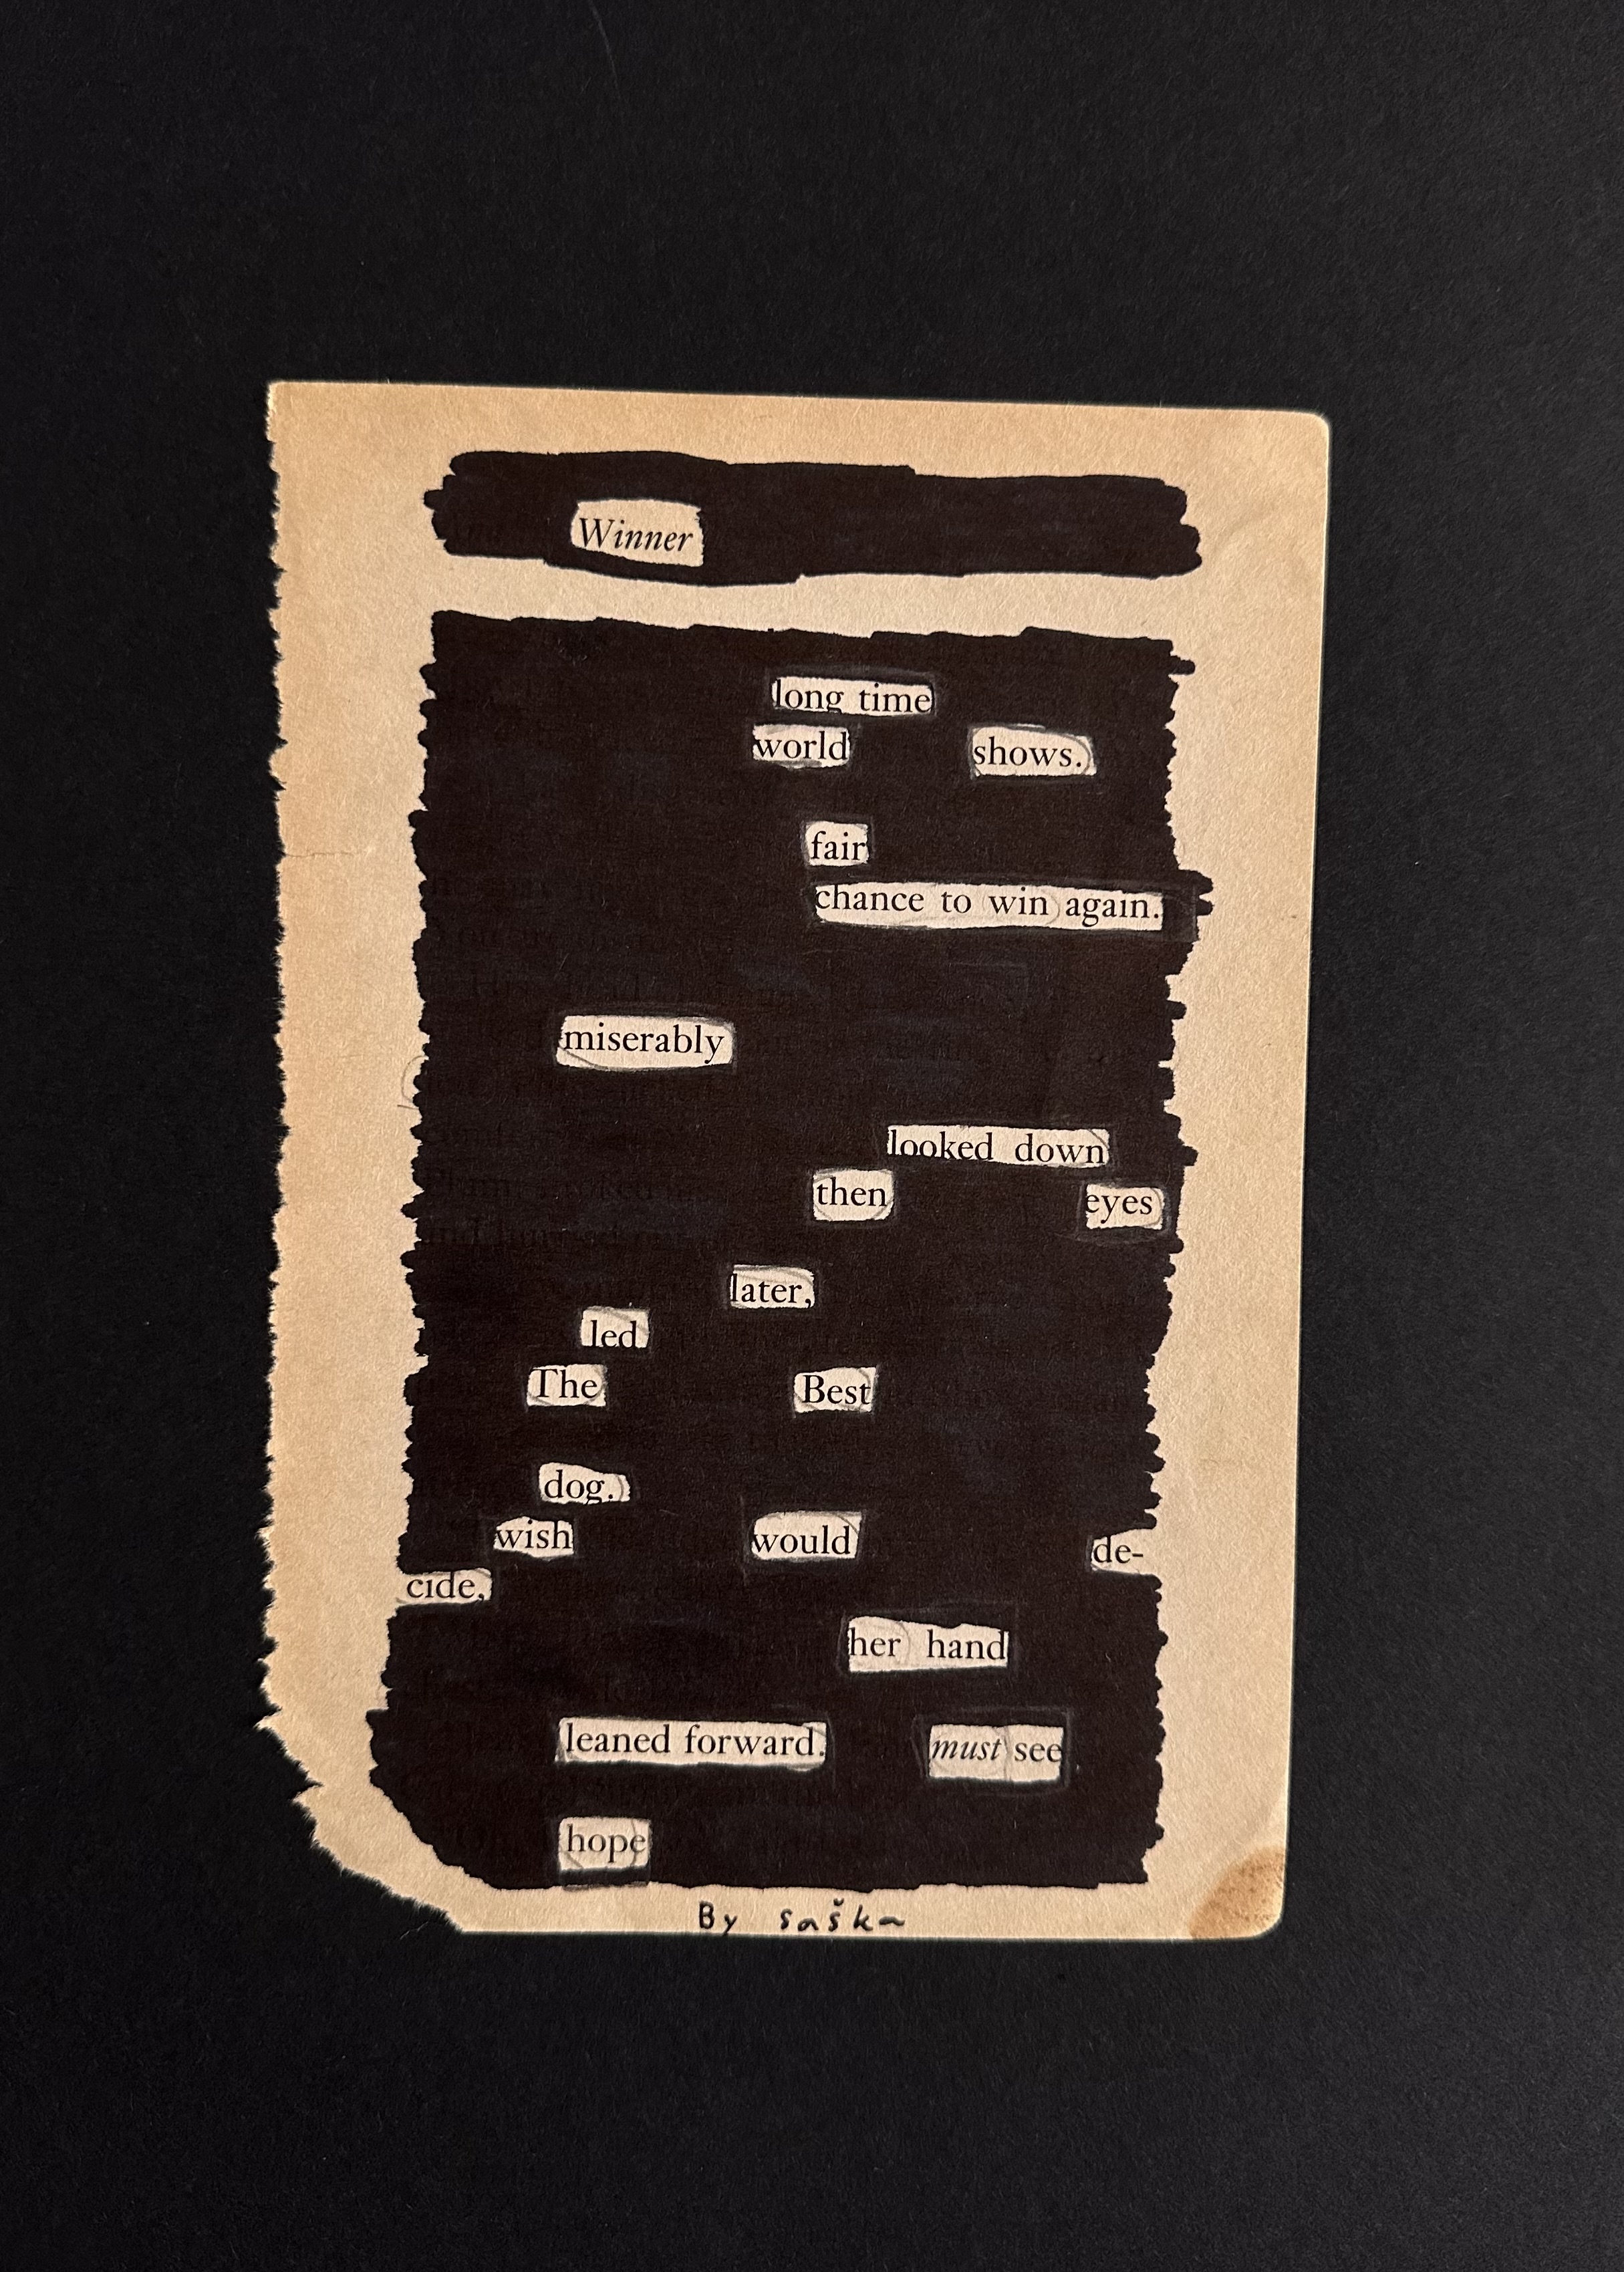 Winner
long time
world shows.
fair
chance to win again.
miserably
looked down
then eyes
later,
led
The Best
dog.
wish would de-
cide,
her hand
leaned forward. must see
hope
By saška